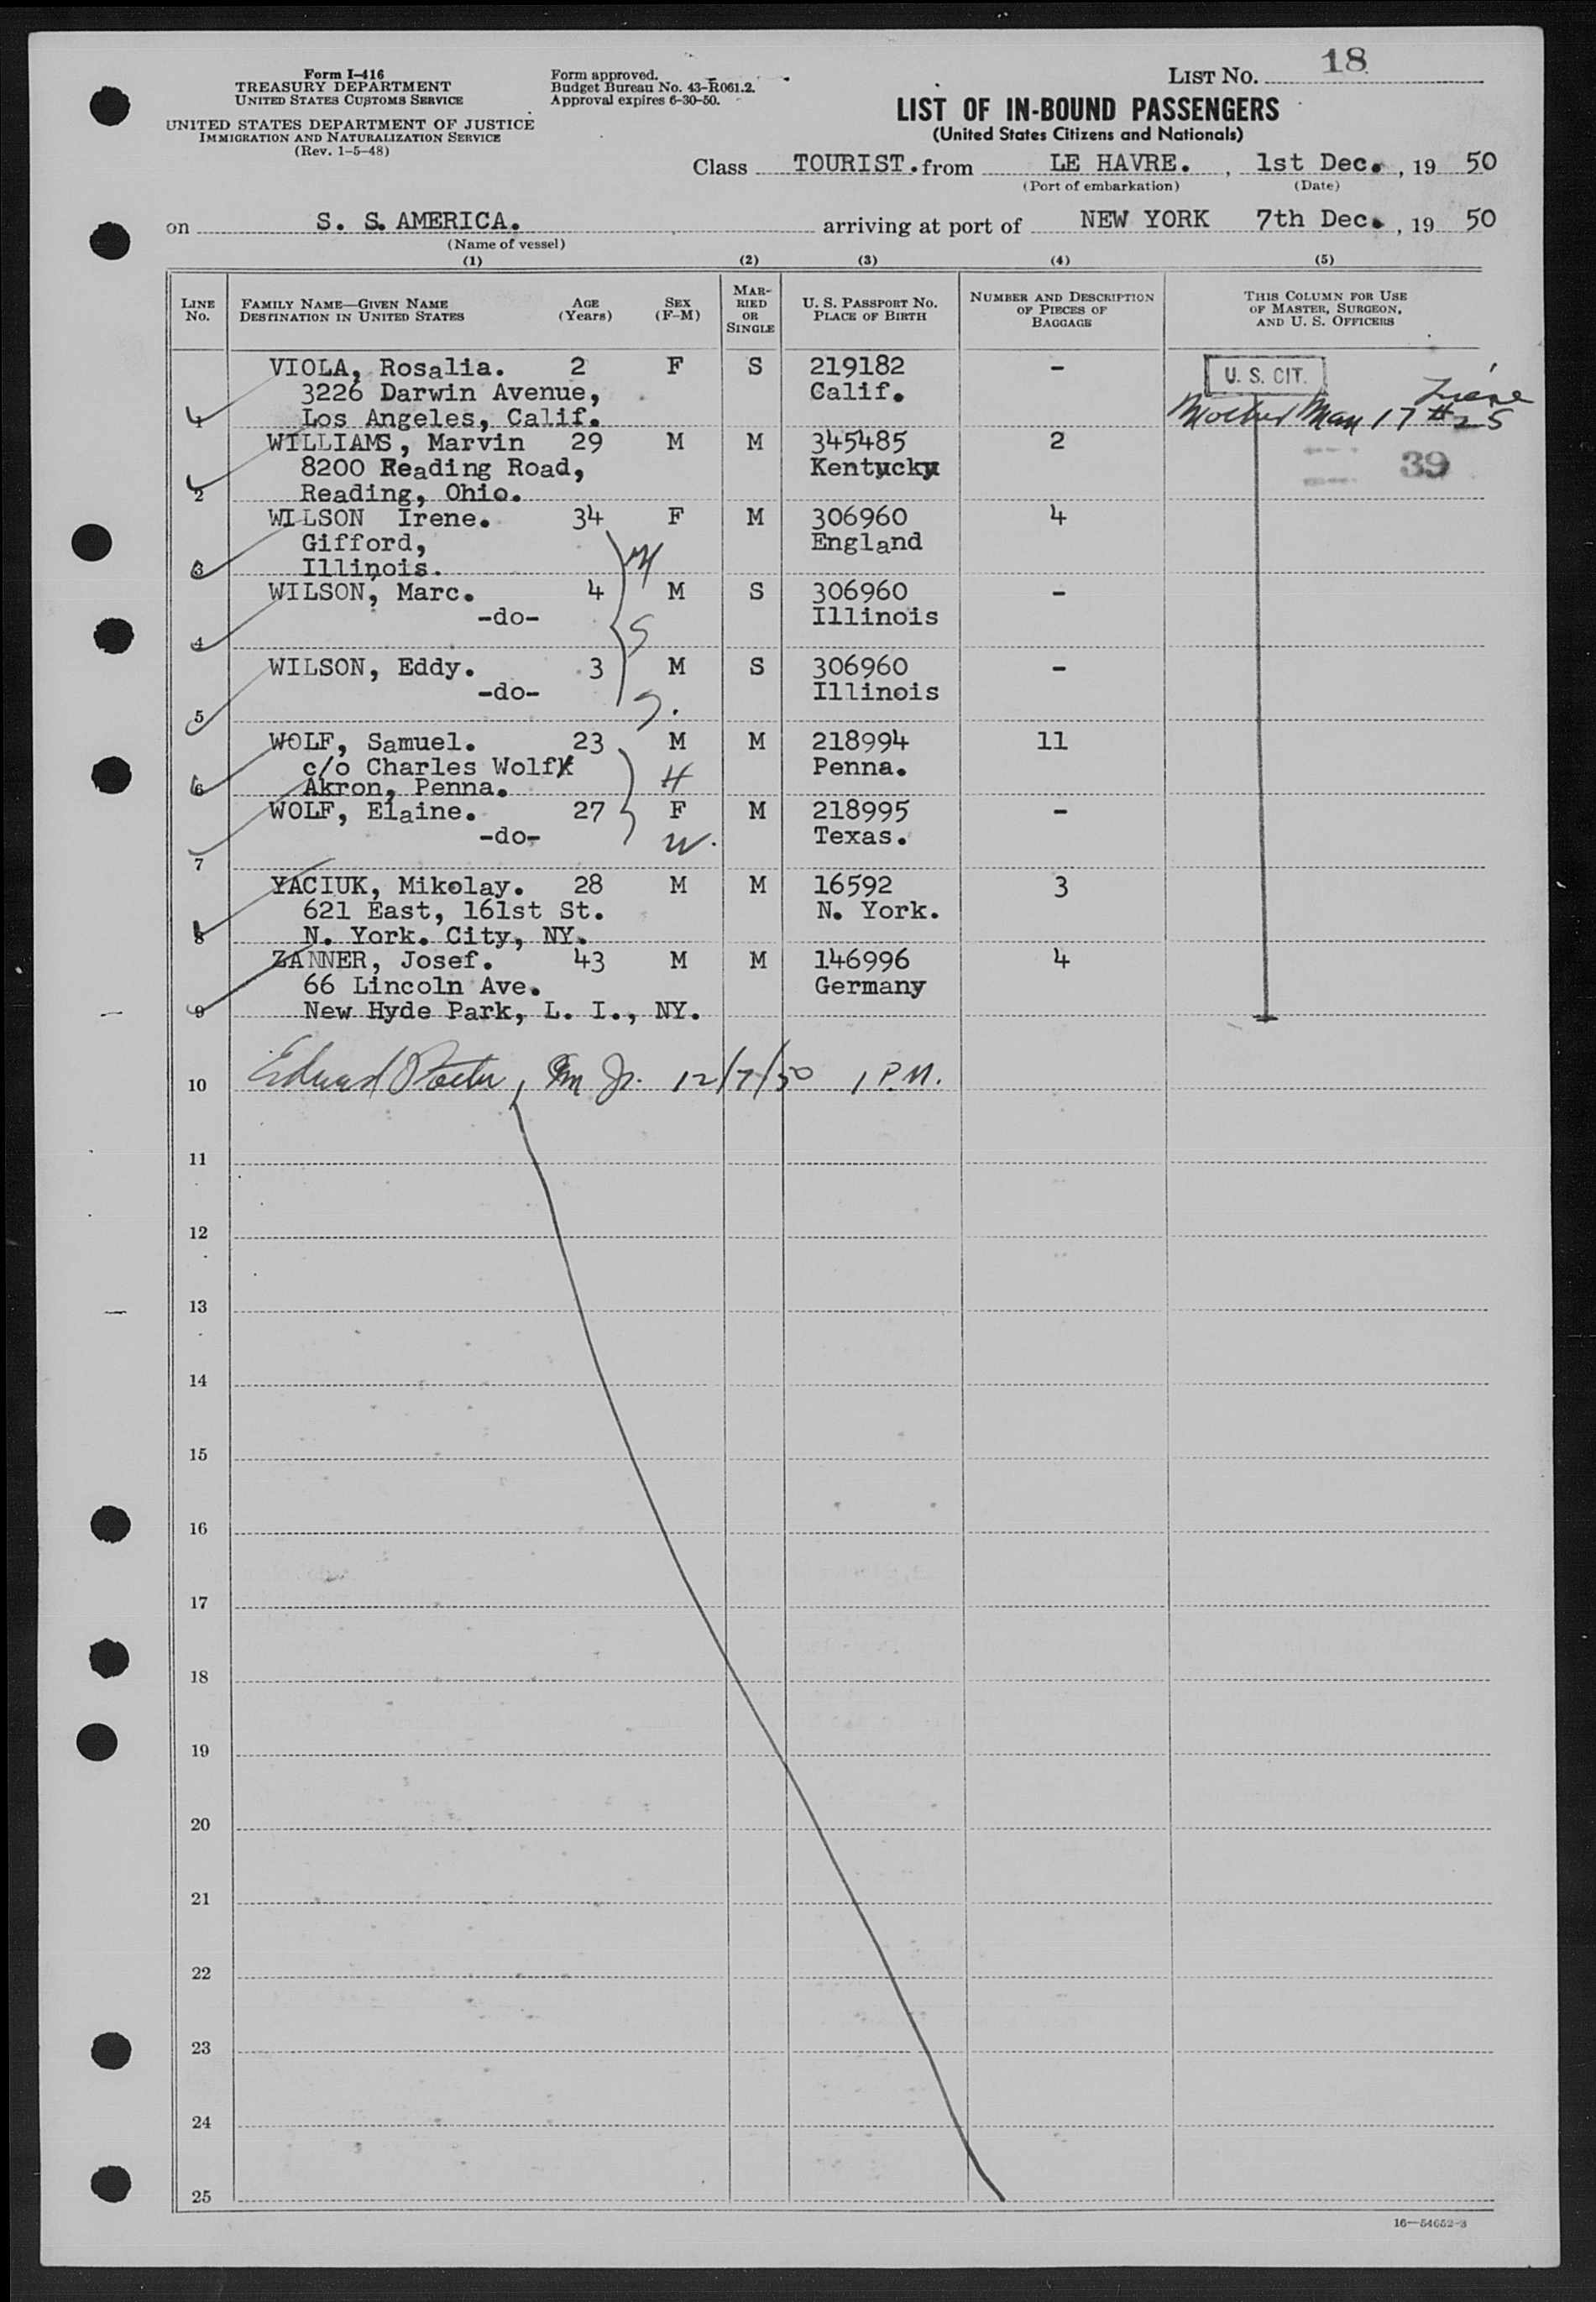 Form I-416
TREASURY DEPARTMENT
UNITED STATES CUSTOMS SERVICE
UNITED STATES DEPARTMENT OF JUSTICE
IMMIGRATION AND NATURALIZATION SERVICE
(Rev. 1-5-48)
Form approved.
Budget Bureau No. 43-R061.2.
Approval expires 6-30-50.
LIST NO. 18
LIST OF IN-BOUND PASSENGERS
(United States Citizens and Nationals)
Class TOURIST. from LE HAVRE. , 1st Dec. , 19 50
(Port of embarkation) (Date)
on S. S. AMERICA. , arriving at port of NEW YORK 7th Dec. , 19 50
(Name of vessel)
(1) (2) (3) (4) (5)
LINE NO. FAMILY NAME—GIVEN NAME DESTINATION IN UNITED STATES AGE (Years) SEX (F-M) MARRIED OR SINGLE U. S. PASSPORT NO. PLACE OF BIRTH NUMBER AND DESCRIPTION OF PIECES OF BAGGAGE THIS COLUMN FOR USE OF MASTER, SURGEON, AND U. S. OFFICERS
VIOLA, Rosalia. 2 F S 219182 - U. S. CIT.
3226 Darwin Avenue, Calif.
1 Los Angeles, Calif. Mother Man 17 #25
WILLIAMS, Marvin 29 M M 345485 2
8200 Reading Road, Kentucky 39
2 Reading, Ohio.
WILSON Irene. 34 F M 306960 4
Gifford, England
3 Illinois. M
WILSON, Marc. 4 M S 306960 -
-do- Illinois
4 S
WILSON, Eddy. 3 M S 306960 -
-do- Illinois
5 S.
WOLF, Samuel. 23 M M 218994 11
c/o Charles Wolf H Penna.
6 Akron, Penna.
WOLF, Elaine. 27 F M 218995 -
-do- W. Texas.
7
YACIUK, Mikolay. 28 M M 16592 3
621 East, 161st St. N. York.
8 N. York. City, NY.
ZANNER, Josef. 43 M M 146996 4
66 Lincoln Ave. Germany
9 New Hyde Park, L. I., NY.
10 Edward Jr. 12/7/50 1 P.M.
11
12
13
14
15
16
17
18
19
20
21
22
23
24
25
16—54652-3